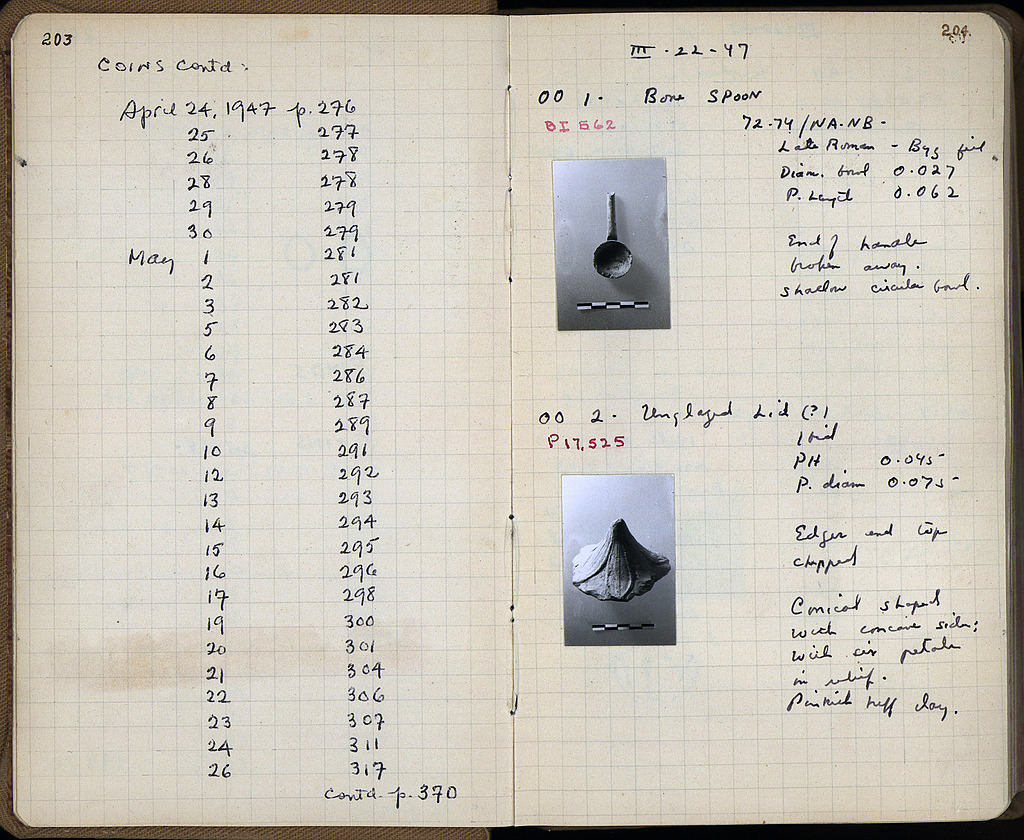 203
COINS Contd.
April 24, 1947 p. 276
25 277
26 278
28 278
29 279
30 279
May 1 281
2 281
3 282
5 283
6 284
7 286
8 287
9 289
10 291
12 292
13 293
14 294
15 295
16 296
17 298
19 300
20 301
21 304
22 306
23 307
24 311
26 317
contd. p. 370
204
III-22-47
OO 1. Bone SPOON
BI 562
72-74/NA-NB-
Late Roman - Byz fill.
Diam. bowl 0.027
P. Length 0.062
End of handle
broken away.
shallow circular bowl.
OO 2. Unglazed Lid (?)
P 17,525
Ibid
PH 0.045-
P. diam 0.075-
Edges and top
chipped
Conical shaped
with concave sides;
with six petals
in relief.
Pinkish buff clay.